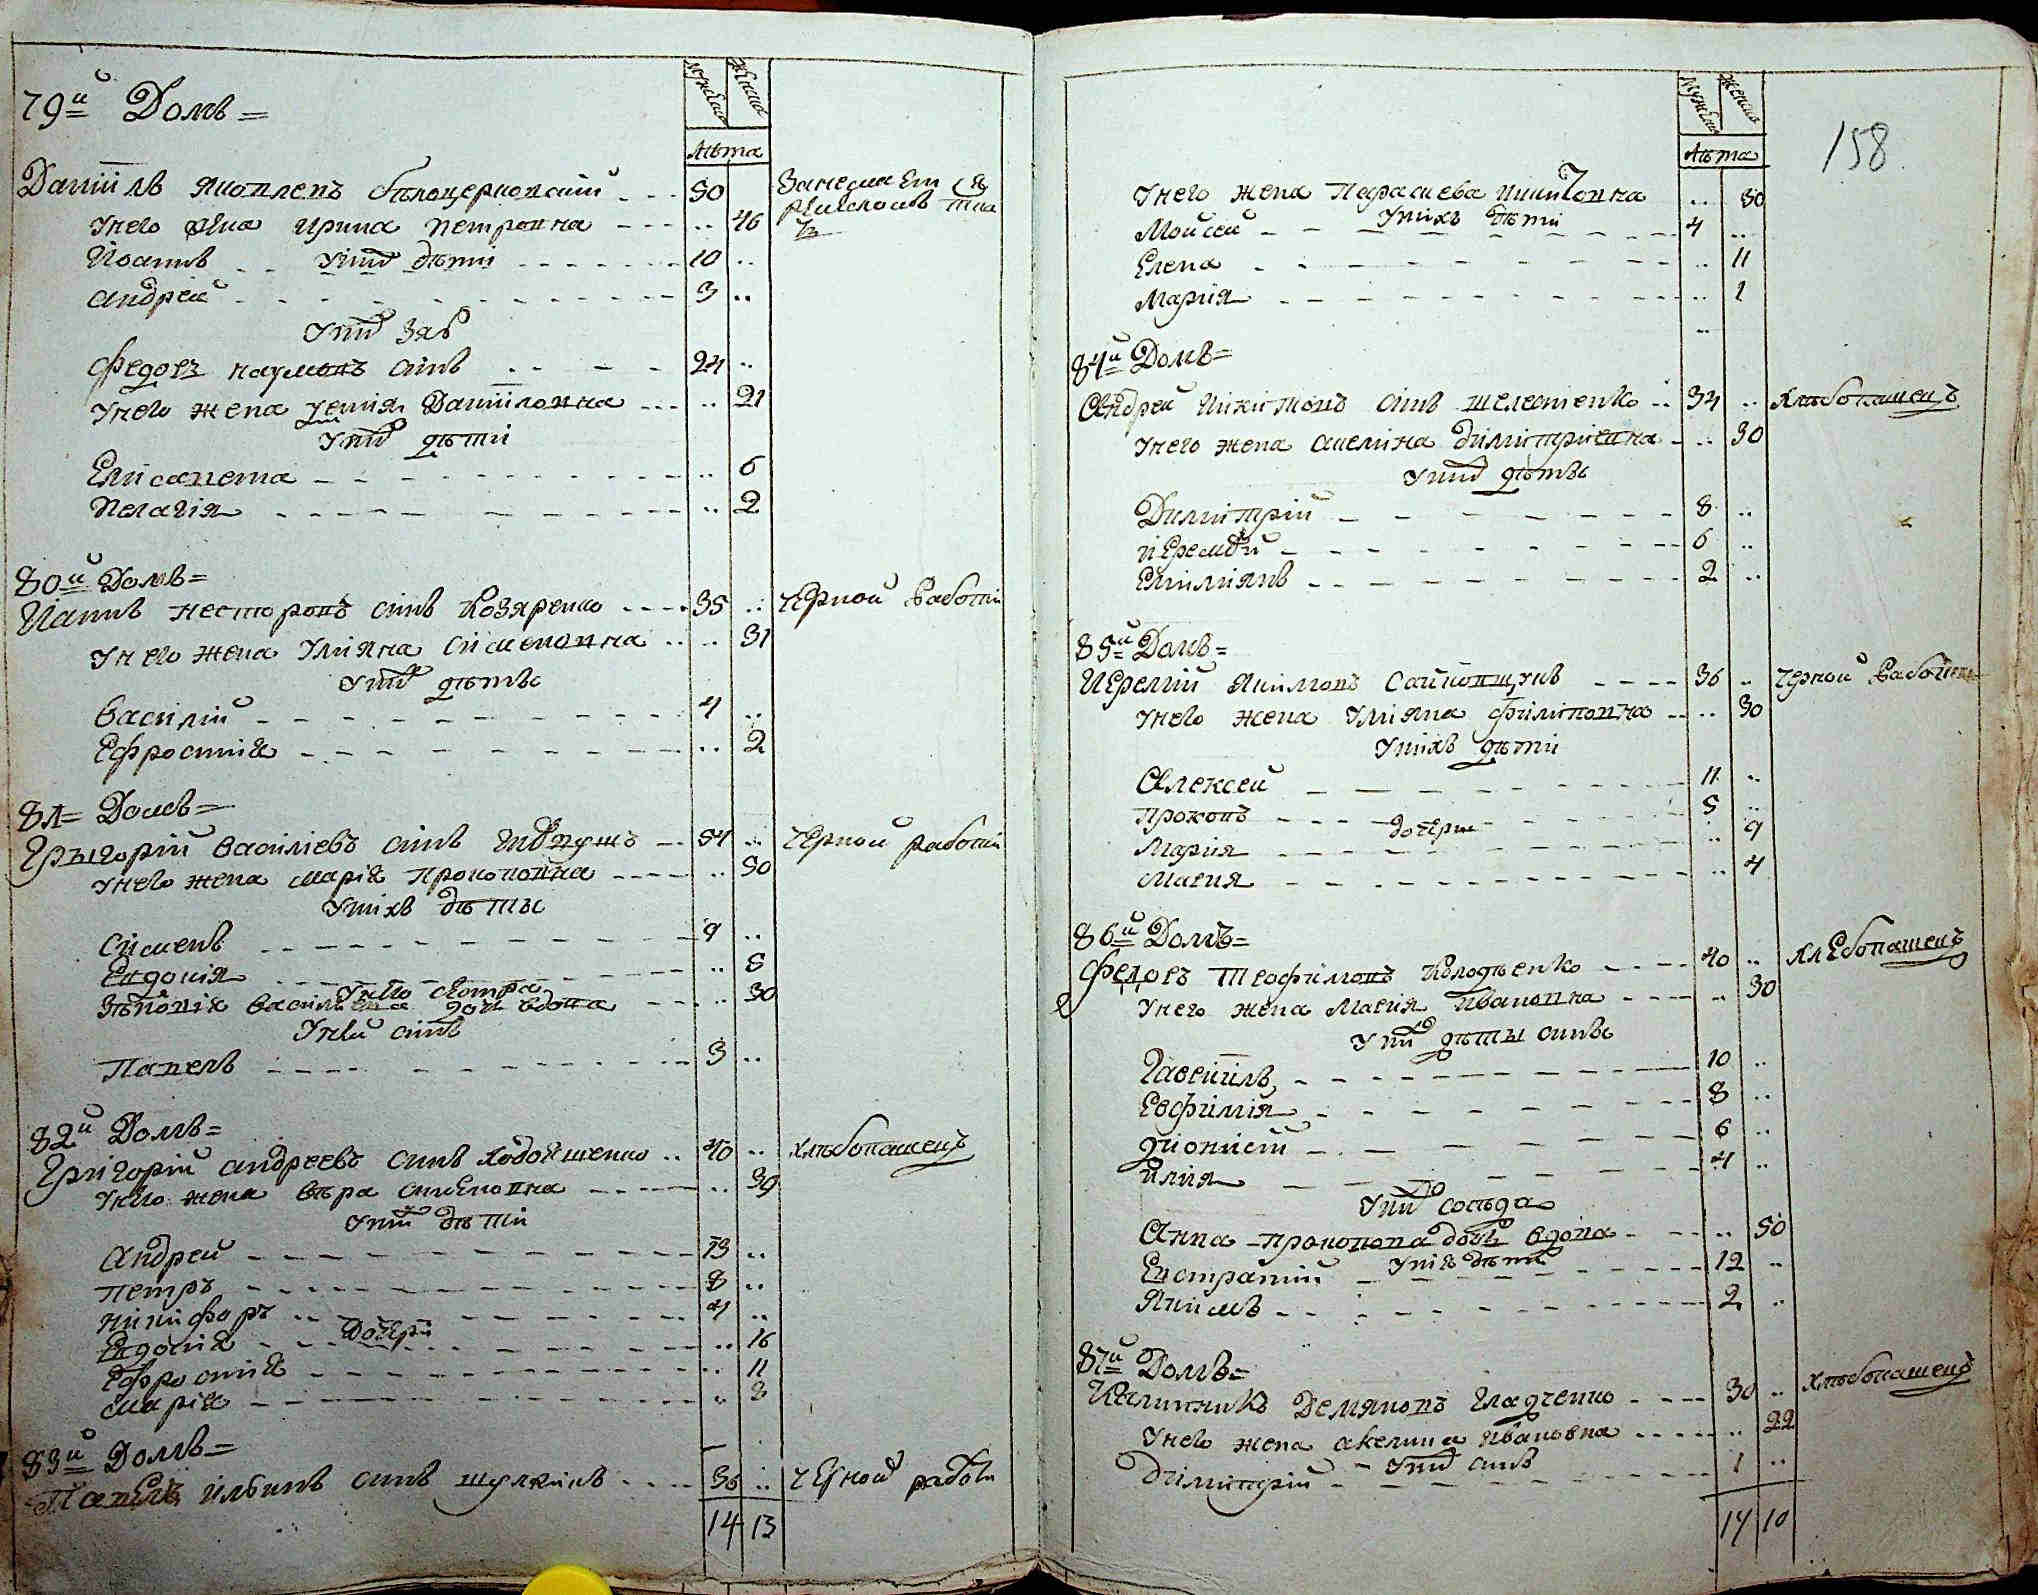 мужеска женска
лѣта
79й Домъ=
Даніилъ Яковлевъ бѣлоцерковскій 50
Унего жена Ирина Петровна 46
Іоаннъ Уних дѣти 10
Андрей 3
Уних зять
Федоръ наумовъ синъ 24
Унего жена Данііловна 21
Уних дѣти
Елисавета 6
Пелагія 2
80й Домъ=
Иванъ несторовъ синъ Козяренко 35 черной работи
Унего жена Улияна Сименовна 31
Уних дѣтьы
Василій 4
Ефросинія 2
81= Домъ=
Грыгорій василіевъ синъ 54 черной работи
Унего жена марія прокоповна 50
Унихъ дѣты
Сименъ 9
Евдокія 5
Унего сестра
василіева дочь вдова 30
Унеи синъ
Павелъ 3
82й Домъ=
Григорій андреевъ синъ 40 хлѣбопашецъ
Унего жена вѣра симеоновна 39
Уних дѣти
Андрей 13
петръ 8
никифоръ 4
дочери
Евдокия 16
Ефросинія 11
марія 8
83й Домъ=
Павелъ ильинъ синъ шулжинъ 36 черной работи
14 13
мужеска женска
лѣта
158
Унего жена Параскева никитовна 30
Унихъ дѣти
Мойсей 4
Елена 11
Мария 1
84й Домъ=
Андрей никитовъ синъ шелестенко 34 хлѣбопашецъ
Унего жена акелина димитриевна 30
Уних дѣтьы
Димитрій 8
иеремѣй 6
Емилиянъ 2
85й Домъ=
Иеремій Якимовъ 36 черной работи
Унего жена Улияна филиповна 30
Унихъ дѣти
Алексей 11
прокопъ 5
дочери
Мария 9
Мария 4
86й Домъ=
Федоръ Теофимовъ Колодѣенко 40 хлЕбопашецъ
Унего жена Мария Ивановна 30
Уних дѣты синьы
Гавріилъ 10
Евфимія 8
дионисій 6
илия 4
Уних сосѣда
Анна прокопова дочь вдова 50
Унія дѣти
Евстратій 12
Якимъ 2
87й Домъ=
Калиникъ Демяновъ гладченко 30 хлѣбопашецъ
Унего жена акелина ивановна 22
Уних синъ
Димитрій 1
14 10